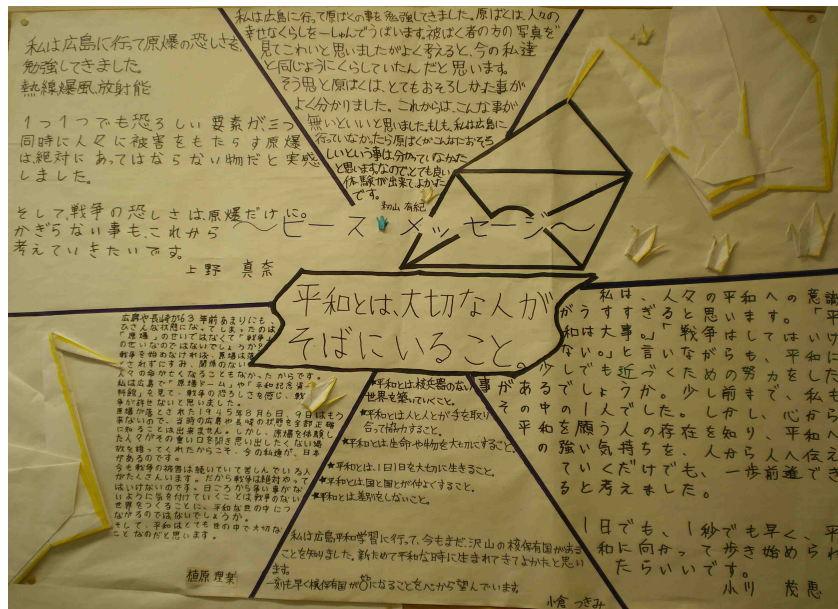 私は広島に行って原爆の恐しさを、
勉強してきました。
熱線、爆風、放射能
1つ1つでも恐ろしい要素が、三つ
同時に人々に被害をもたらす原爆
は絶対にあってはならない物だと実感
しました。
そして、戦争の恐しさは、原爆だけに。
かぎらない事も、これから
考えていきたいです。
上野 真奈
私は広島に行って原ばくの事を勉強してきました。原ばくは、人々の
幸せなくらしを一しゅんでうばいます。被ばく者の方の写真を
見てこわいと思いましたがよく考えると、今の私達
と同じようにくらしていたんだと思います。
そう思と原ばくは、とてもおそろしかた事が
よく分かりました。これからは、こんな事が
無いといいと思いました。もしも、私は広島に
行っていなかったら原ばくがこんなにおそろ
しいという事は、分かっていなかた
と思います。なのでとても良い
体験が出来てよかた
です。
有紀
〜ピース メッセージ〜
平和とは、大切な人が
そばにいること。
広島や長崎が63年前あまりにも、
ひさんな状態になってしまったのは
「原爆」のせいではなくて「戦争」
のせいなのではないでしょうか?
戦争を始めなければ、原爆は落
とされずにすみ、関係のない
人々の命が亡くなることもなかったからです。
私は広島で「原爆ドーム」や「平和記念資
料館」を見て、戦争の恐ろしさを感じ、戦
争が許せないと思いました。
原爆が落とされた1945年8月6日、9日はもう
来ないので、当時の広島や長崎の状態を全部正確
に知ることは出来ません。しかし、原爆を体験し
た人々がその重い口を開き思い出したくない場
故を語ってくれたからこそ、今の私達が、日本
があるのです。
今も戦争の被害は続いていて苦しんでいる人
がたくさんいます。だから戦争は絶対やって
はいけないのです。日ごろから争い事がな
いように気を付けていくことは戦争のない
世界をつくることに、平和な世の中につ
ながるのではないでしょうか。
そして、平和はとても世の中で大切な
ことなのだと思います。
植原 理菜
★平和とは、核兵器のない
世界を築いていくこと。
★平和とは人と人とが手を取り
合って協力すること。
★平和とは生命や物を大切にすること。
★平和とは、1日1日を大切に生きること。
★平和とは、国と国とが仲よくすること。
★平和とは、差別をしないこと。
私は広島平和学習に行って、今もまだ、沢山の核保有国がある
ことを知りました。新ためて平和な時に生まれてきてよかたと思い
ます。
一刻も早く核保有国が0になることを心から望んでいます。
小倉 つきみ
私は、人々の平和への意識
がうすすぎると思います。「平
和は大事。」「戦争はしてはいけ
ない。」と言いながらも、平和に
少しでも近づくための努力をした
事があるでしょうか。少し前まで、私も
その中の1人でした。しかし、心から
平和を願う人の存在を知り、平和へ
の強い気持ちを、人から人へ伝え
ていくだけでも、一歩前進でき
ると考えました。
1日でも、1秒でも早く、平
和に向かって歩き始められ
たらいいです。
小川 茂恵